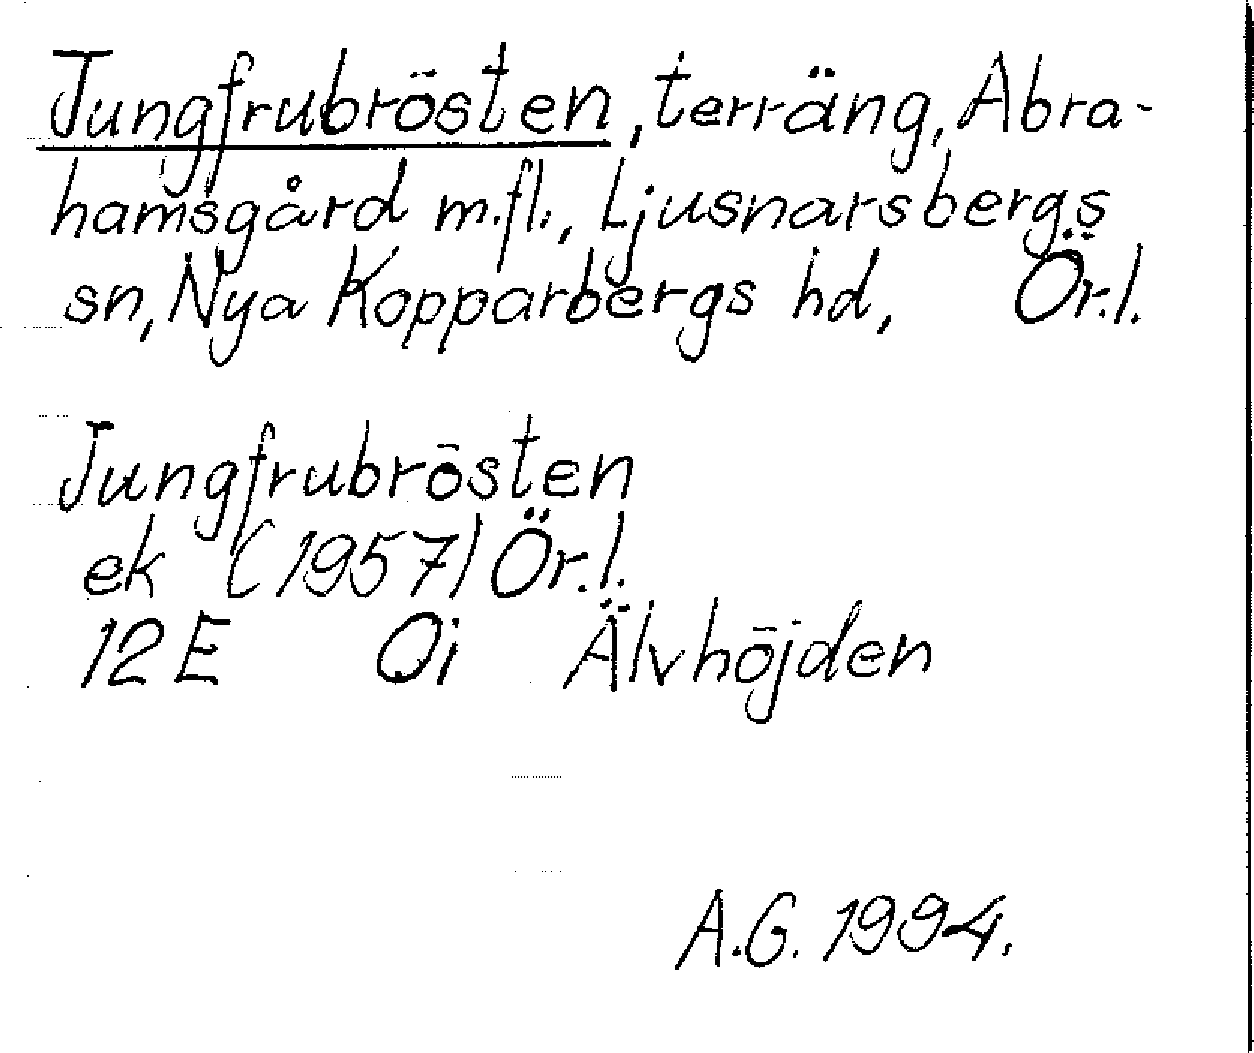 Jungfrubrösten, terräng, Abra-
hamsgård m.fl., Ljusnarsbergs
sn, Nya Kopparbergs hd, Ör.l.
Jungfrubrösten
ek (1957) Ör.l.
12E Oi Älvhöjden
A.G. 1994.